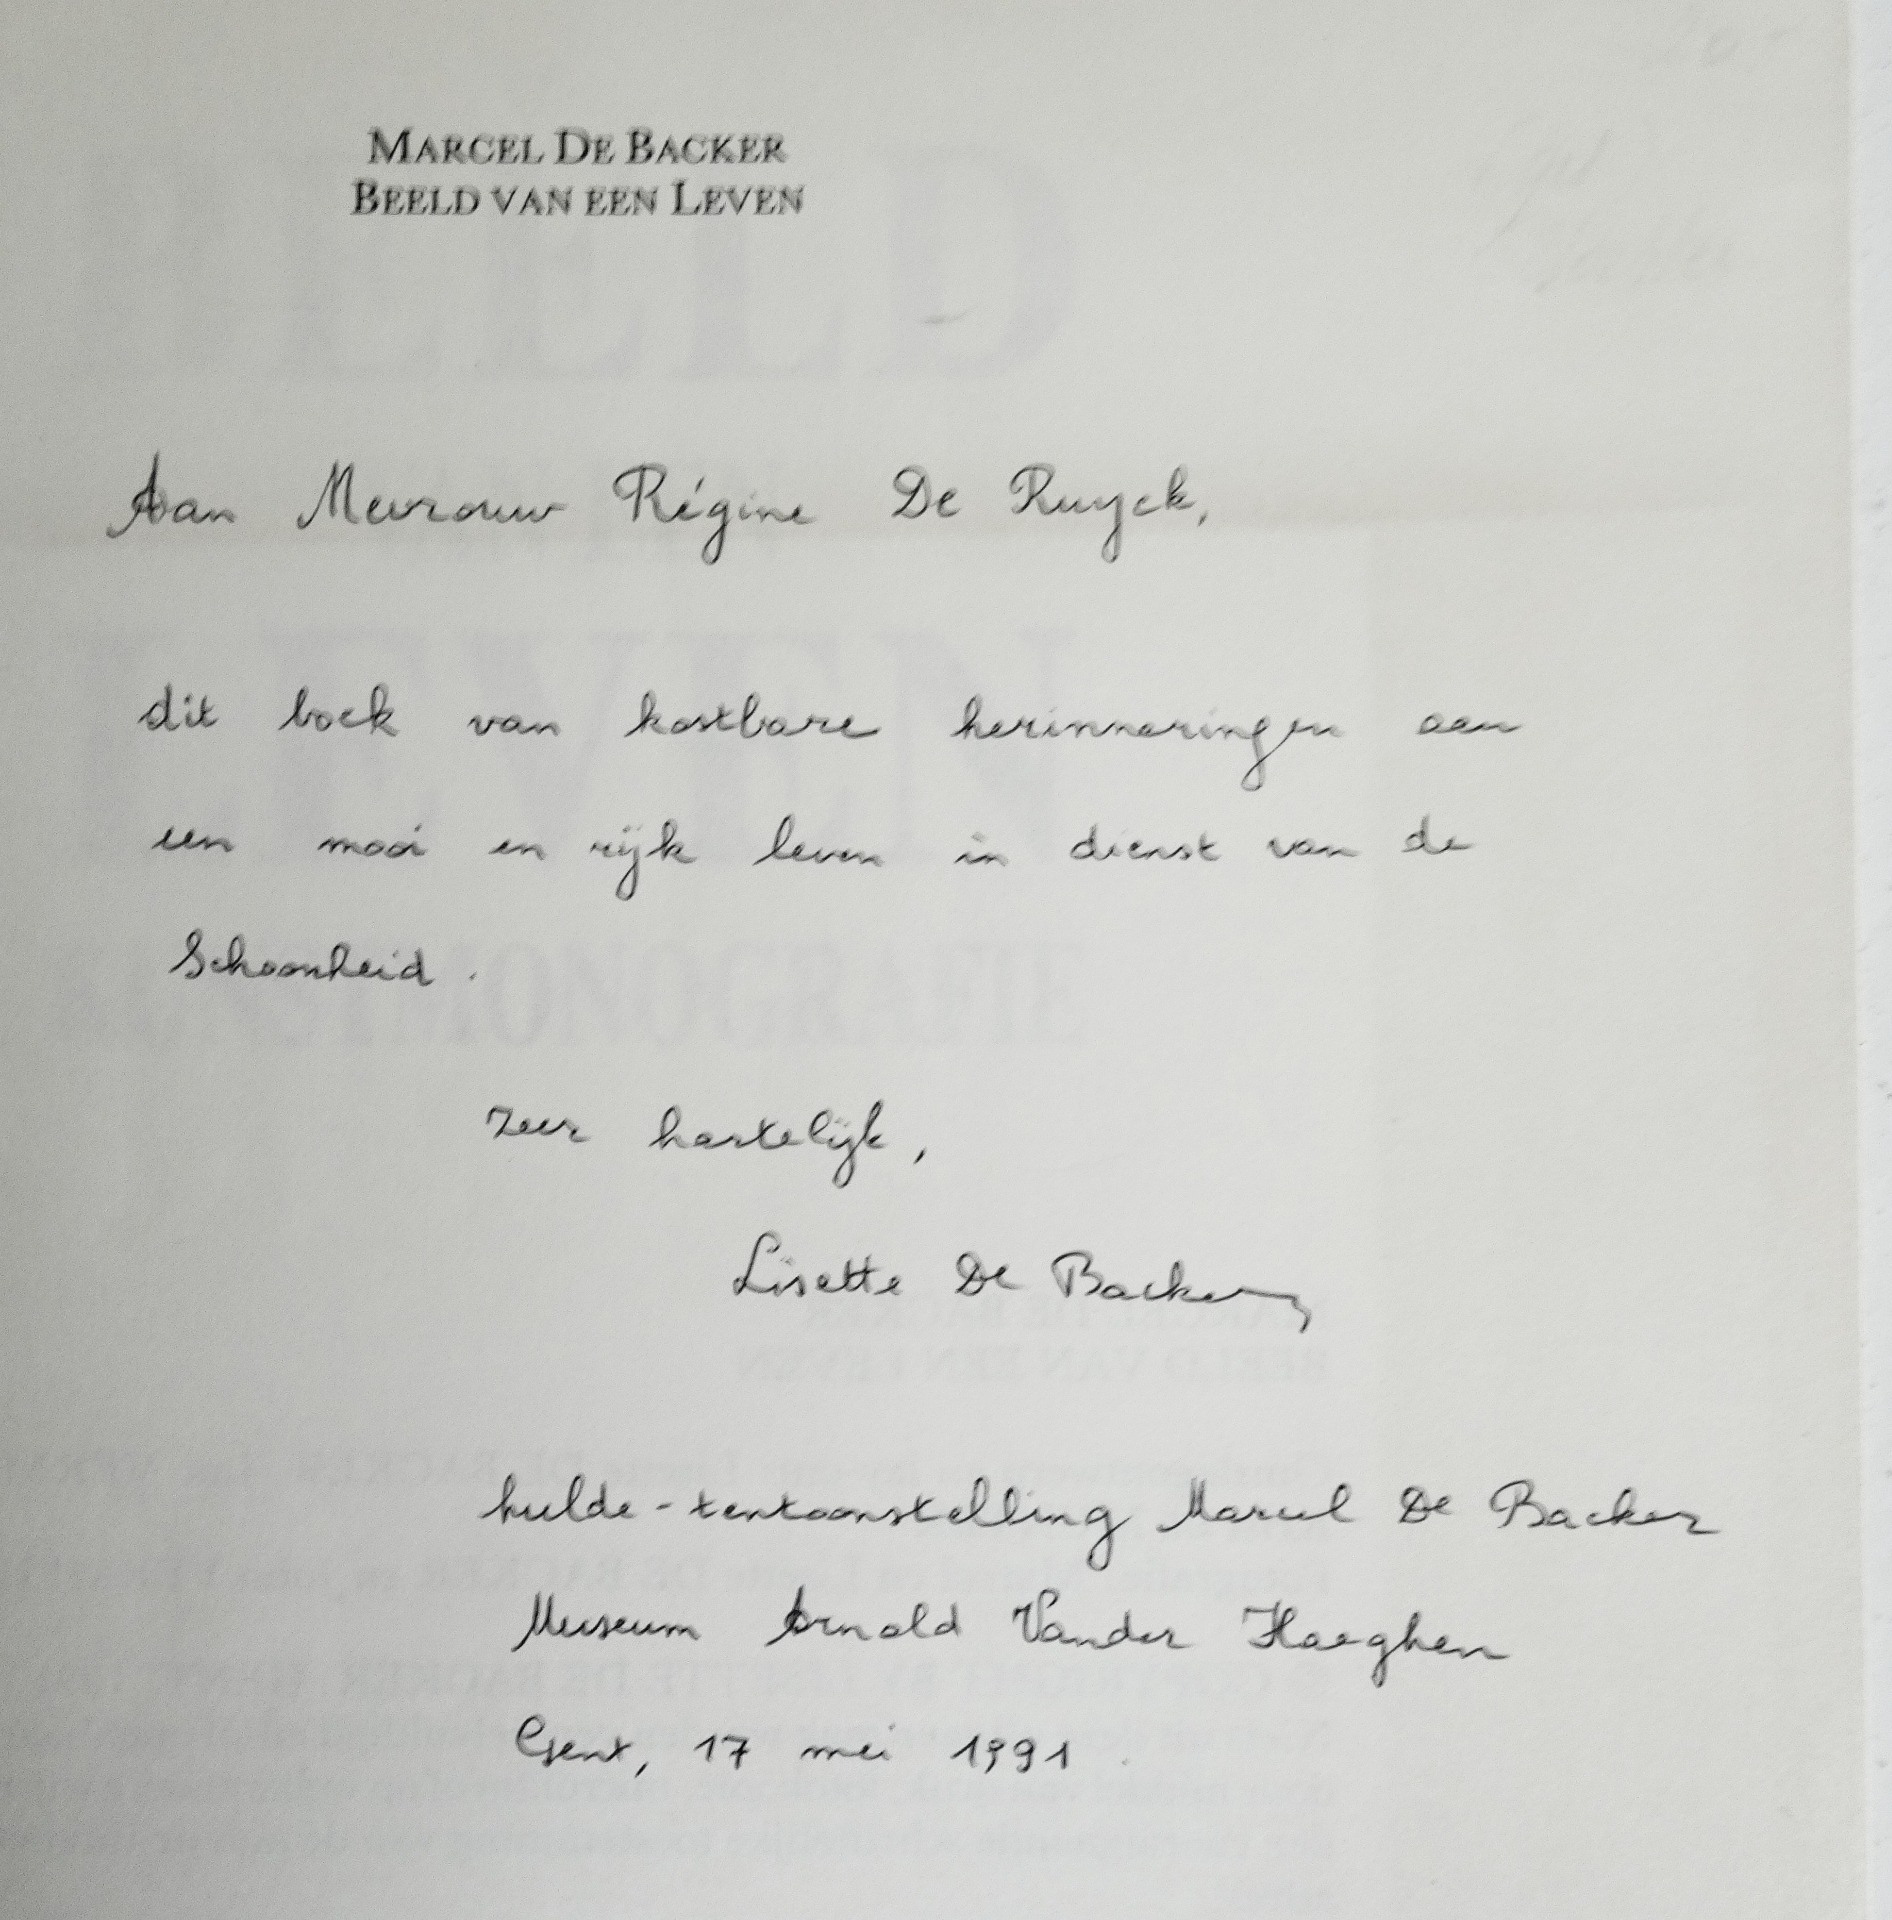 MARCEL DE BACKER
BEELD VAN EEN LEVEN
Aan Mevrouw Régine De Ruyck,
dit boek van kostbare herinneringen aan
een mooi en rijk leven in dienst van de
Schoonheid.
Zeer hartelijk,
Lisette De Backer
hulde-tentoonstelling Marcel De Backer
Museum Arnold Vander Haeghen
Gent, 17 mei 1991.